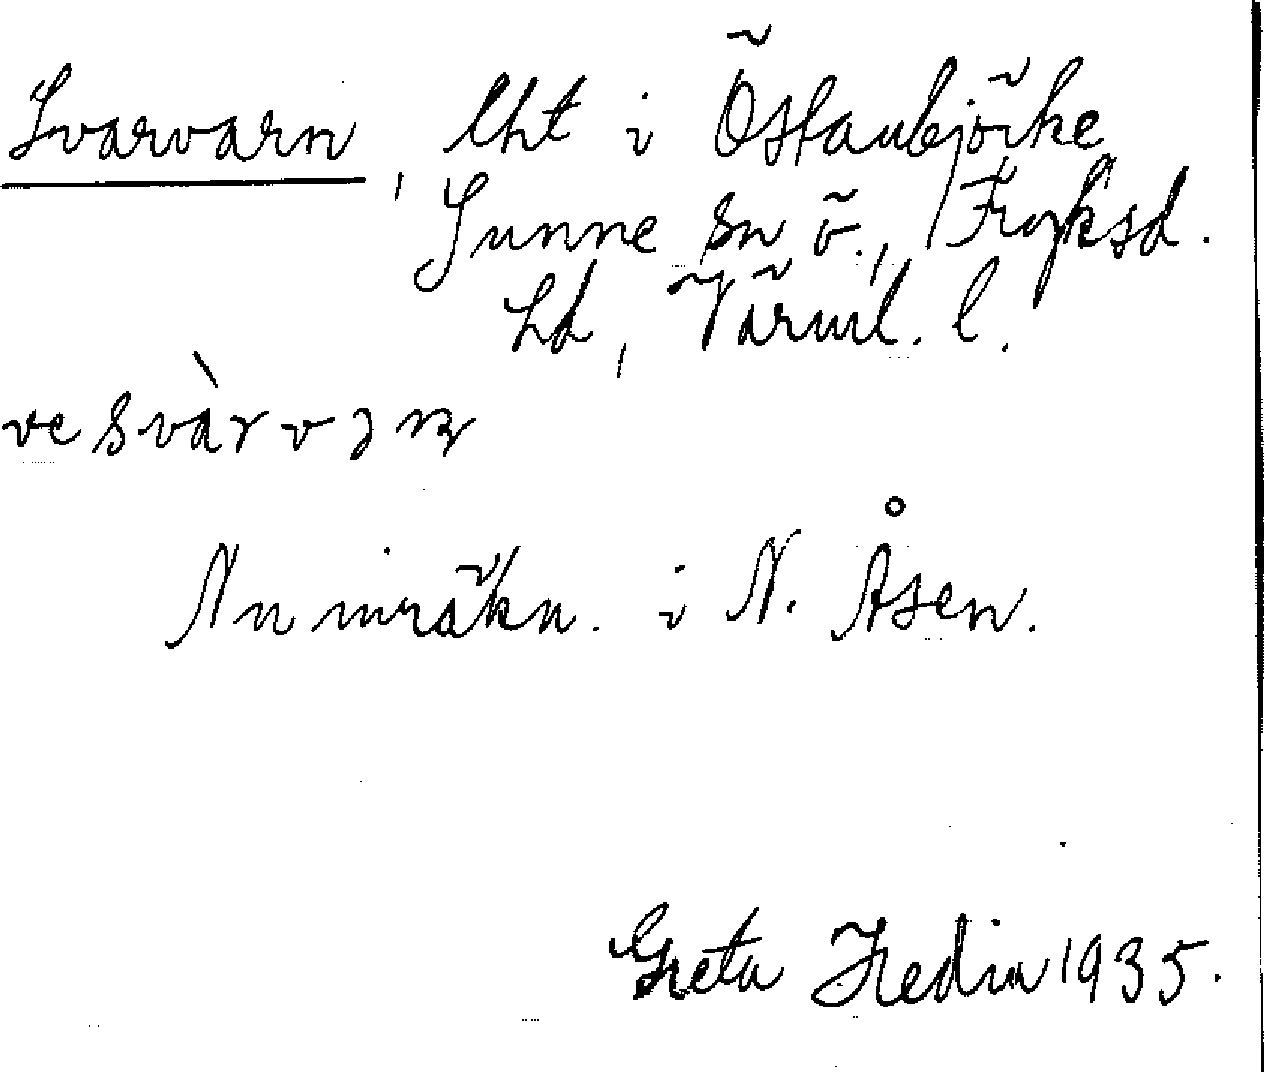 Svarvarn, lht i Östanbjörke
Sunne sn ö., Fryksd.
hd, Värml. l.
ve svàrvəɳ
Nu inräkn. i N. Åsen.
Greta Hedin 1935.